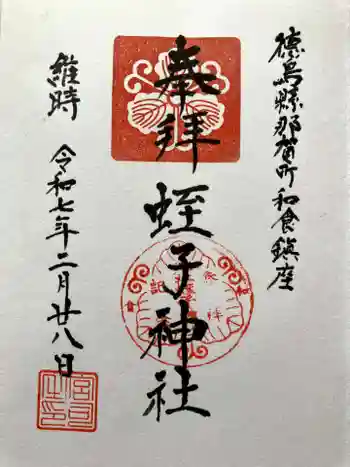 徳島縣那賀町和食鎮座
奉拝
蛭子神社
維時
令和七年二月廿八日
宮司之印